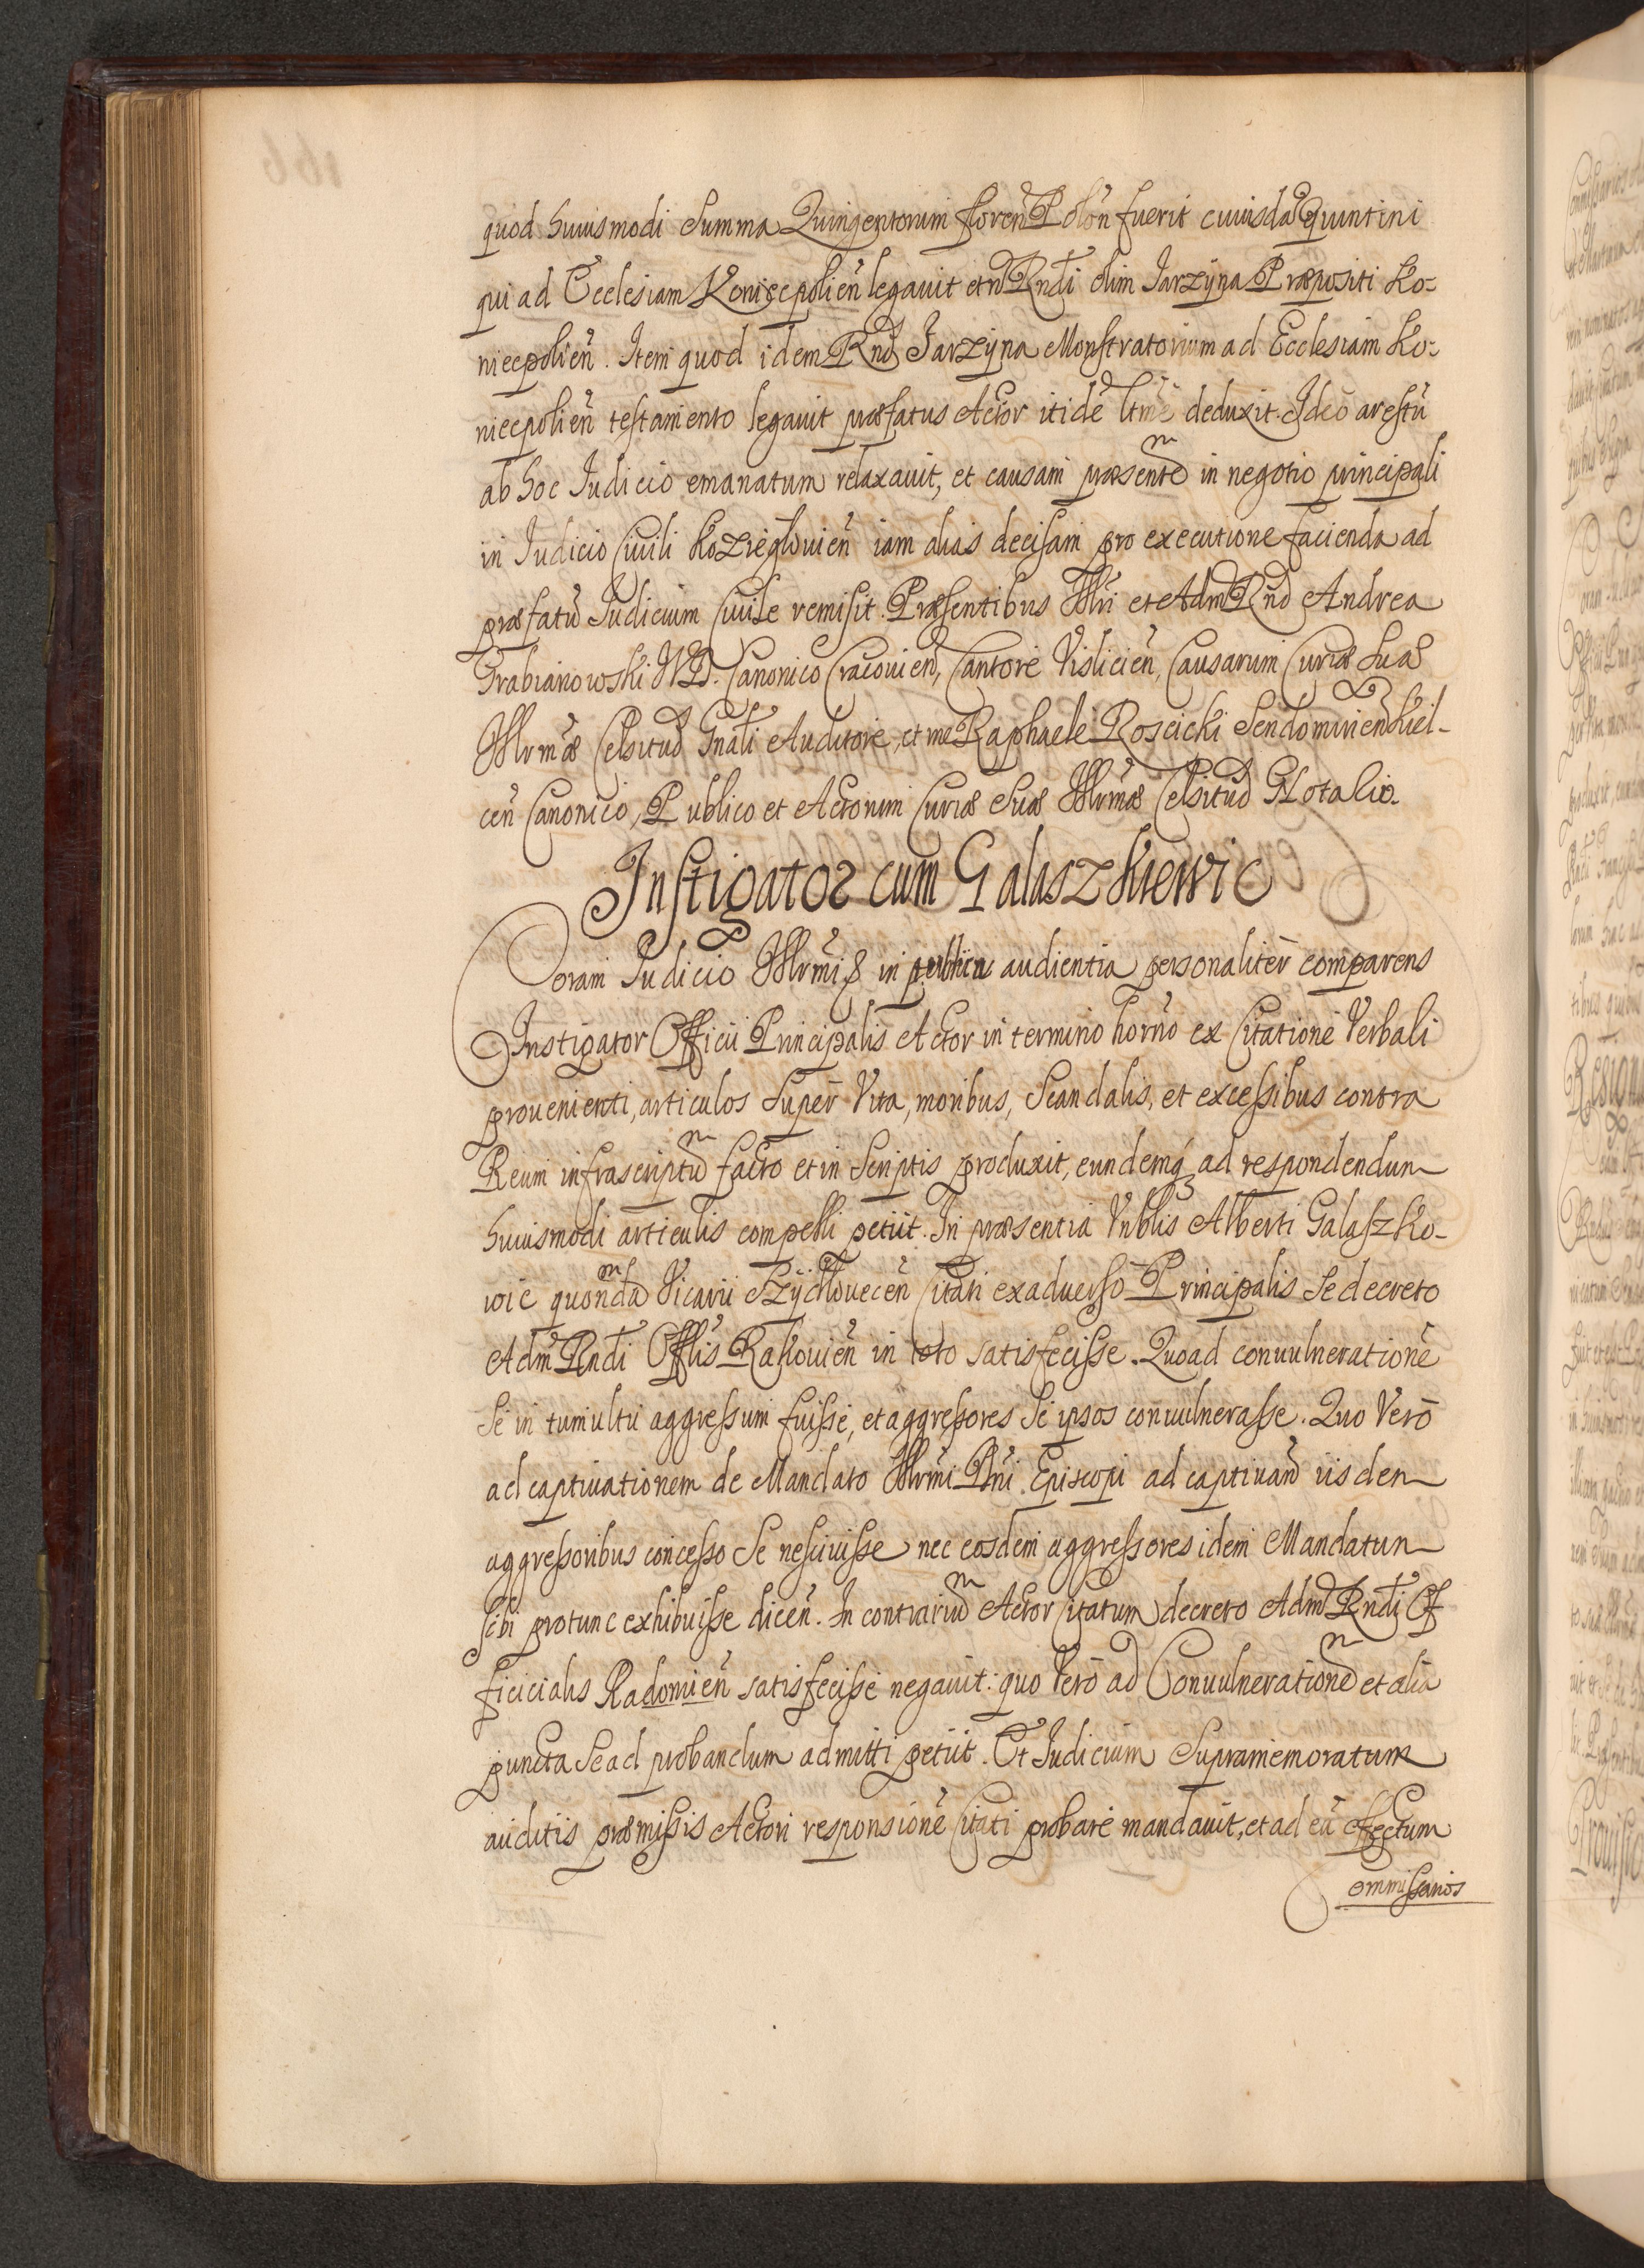 quod huiusmodi Summa Quingentorum floren̄ Polon̄ fuerit cuiusdā Quintini
qui ad Ecclesiam Koniecpolien̄ legauit et n̄ Rndi olim Jarzyna Præpositi Ko-
niecpolien̄. Item quod idem Rnd Jarzyna Monstratorium ad Ecclesiam Ko-
niecpolien̄ testamento legauit præfatus Actor itidē ltmē deduxit. Ideo arestū
ab hoc Judicio emanatum relaxauit, et causam præsentē in negotio principali
in Judicio Ciuili Kozieglouien̄ iam alias decisam pro executione facienda ad
præfatū Judicium Ciuile remisit. Præsentibus Illri et Adm Rnd Andrea
Grabianowski IVD. Canonico Cracouien̄, Cantore Vislicien̄, Causarum Curiæ Suæ
Illrmæ Celsitud Gnali Auditore, et me Raphaele Roscicki Sendomirien̄ Kiel-
cen̄ Canonico, Publico et Actorum Curiæ Suæ Illrmæ Celsitud Notario.
Instigator cum Galaszkiewic
Coram Judicio Illrmi &c in publica audientia personaliter comparens
Instigator Officii Principalis Actor in termino horno ex Citatione Verbali
prouenienti, articulos super Vita, moribus, Scandalis, et excessibus contra
Reum infrascriptū facto et in Scriptis produxit, eundemq₃ ad respondendum
huiusmodi articulis compelli petiit. In præsentia Vnblis Alberti Galaszko-
wic quondā Vicarii Szydlouecen̄ Citati ex aduerso Principalis se decreto
Adm Rndi Offlis Rakouien̄ in toto satisfecisse. Quoad conuulnerationē
Se in tumultu aggressum fuisse, et aggressores Se ipsos conuulnerasse. Quo Vero
ad captiuationem de Mandato Illrmi Dni Episcopi ad captiuand iisdem
aggressoribus concesso Se nesciuisse nec eosdem aggressores idem Mandatum
sibi protunc exhibuisse dicen̄. In contrariū Actor Citatum decreto Adm Rndi Of
ficicialis Radomien̄ satisfecisse negauit: quo Vero ad Conuulnerationē et alia
puncta Se ad probandum admitti petiit. Et Judicium Supramemoratum
auditis præmissis Actori responsionē Citati probare mandauit, et ad eū effectum
Commissarios